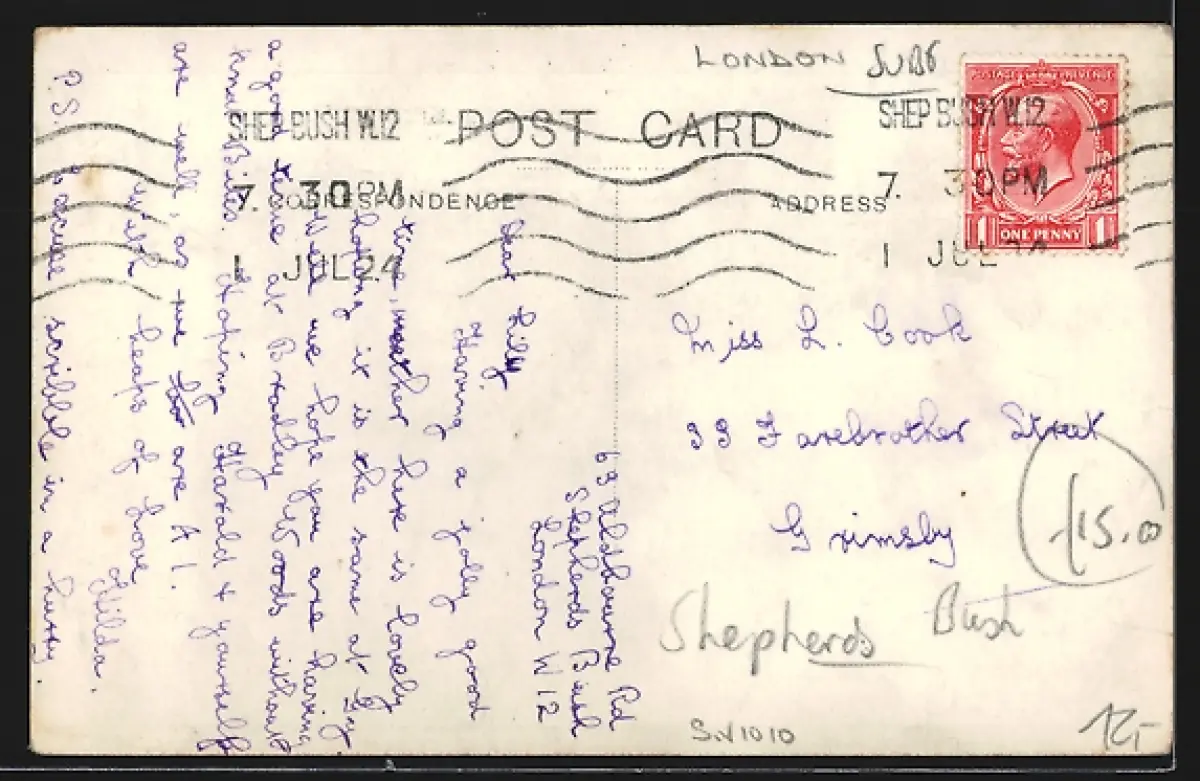 LONDON SUBS
SHEP BUSH W.12
7. 30 PM
1 JUL 24
POST CARD
SHEP BUSH W.12
7. 30 PM
1 JUL 24
CORRESPONDENCE
ADDRESS
POSTAGE REVENUE
1 ONE PENNY 1
63 Aldbourne Rd
Shepherds Bush
London W 12
Dear Lily,
Having a jolly good
time, weather here is lovely
hoping it is the same at Gy.
Well we hope you are having
a good time at Bradley Woods without
Bites. Hoping Harold & yourself
are well, as we are A 1.
With heaps of love
Hilda.
P.S. Excuse scribble in a hurry.
Miss L. Cook
33 Farebrother Street
Grimsby
£15.00
Shepherds Bush
S.V1010
12,-